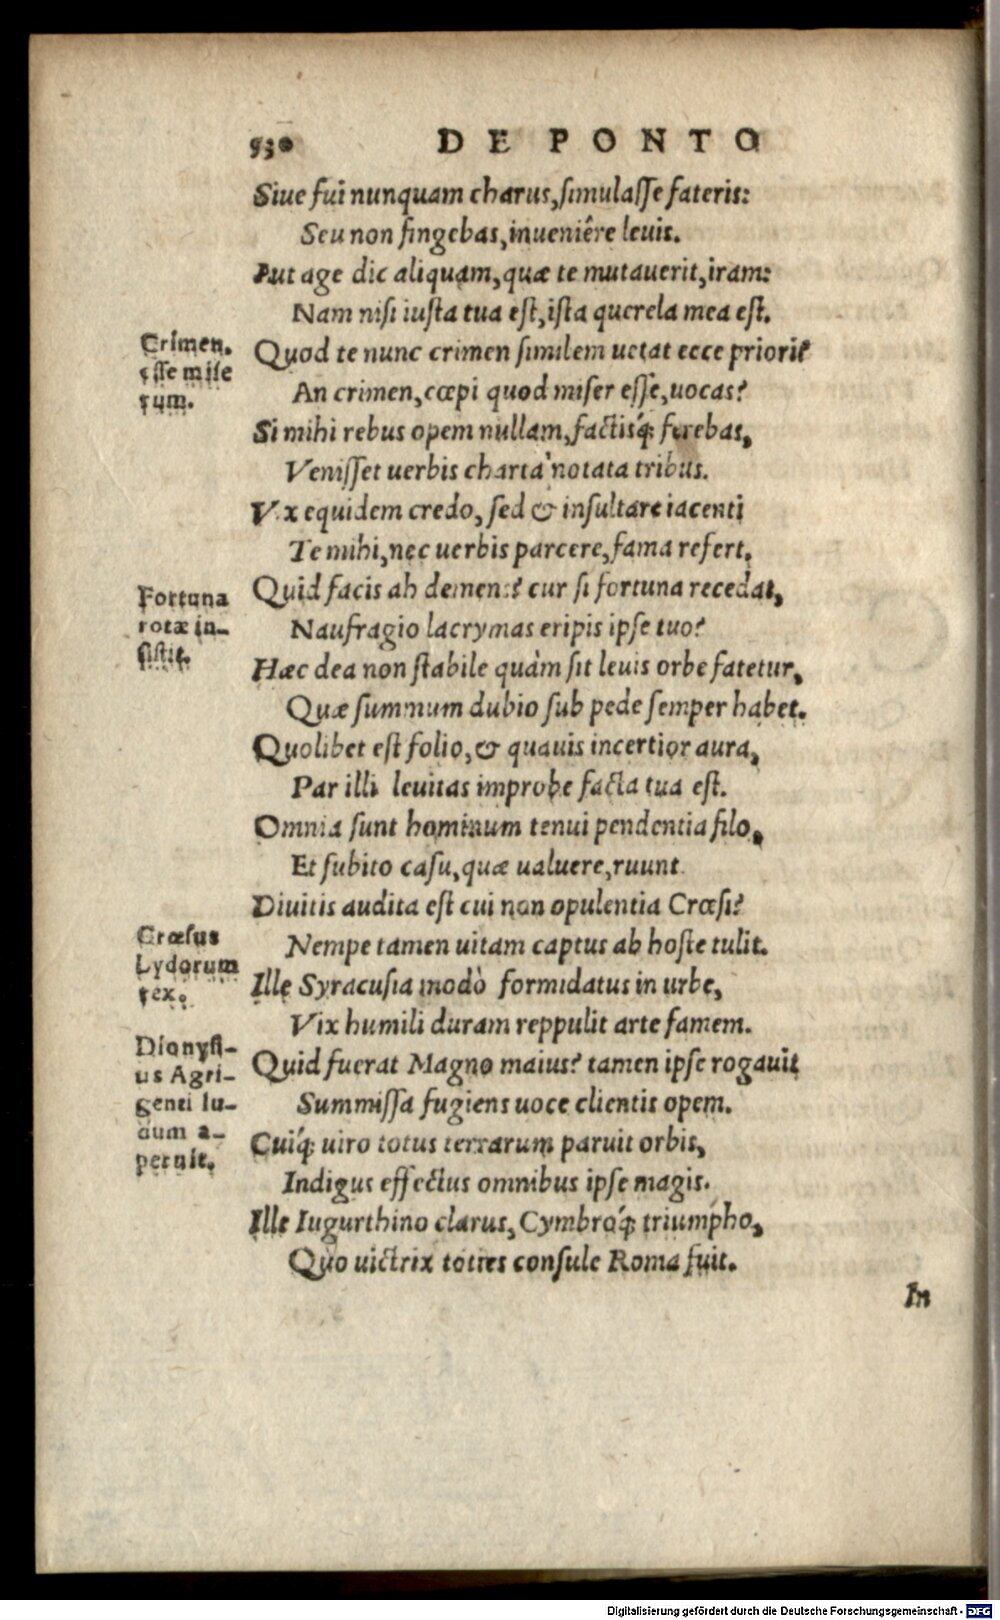 530 DE PONTO
Siue fui nunquam charus, simulasse fateris:
Seu non fingebas, inueniêre leuis.
Aut age dic aliquam, quæ te mutauerit, iram:
Nam nisi iusta tua est, ista querela mea est.
Crimen.
esse mise
rum.
Quod te nunc crimen similem uetat ecce priori?
An crimen, cœpi quod miser esse, uocas?
Si mihi rebus opem nullam, factisq́; ferebas,
Venisset uerbis charta notata tribus.
Vx equidem credo, sed & insultare iacenti
Te mihi, nec uerbis parcere, fama refert.
Fortuna
rotæ in-
sistit.
Quid facis ah demens? cur si fortuna recedat,
Naufragio lacrymas eripis ipse tuo?
Hæc dea non stabile quàm sit leuis orbe fatetur,
Quæ summum dubio sub pede semper habet.
Quolibet est folio, & quauis incertior aura,
Par illi leuitas improbe facta tua est.
Omnia sunt hominum tenui pendentia filo,
Et subito casu, quæ ualuere, ruunt.
Diuitis audita est cui non opulentia Crœsi?
Crœsus
Lydorum
rex.
Nempe tamen uitam captus ab hoste tulit.
Ille Syracusia modò formidatus in urbe,
Vix humili duram reppulit arte famem.
Dionysi-
us Agri-
genti lu-
dum a-
peruit.
Quid fuerat Magno maius? tamen ipse rogauit
Summissa fugiens uoce clientis opem.
Cuiq́; uiro totus terrarum paruit orbis,
Indigus effectus omnibus ipse magis.
Ille Iugurthino clarus, Cymbroq́; triumpho,
Quo uictrix toties consule Roma fuit.
In
Digitalisierung gefördert durch die Deutsche Forschungsgemeinschaft - DFG